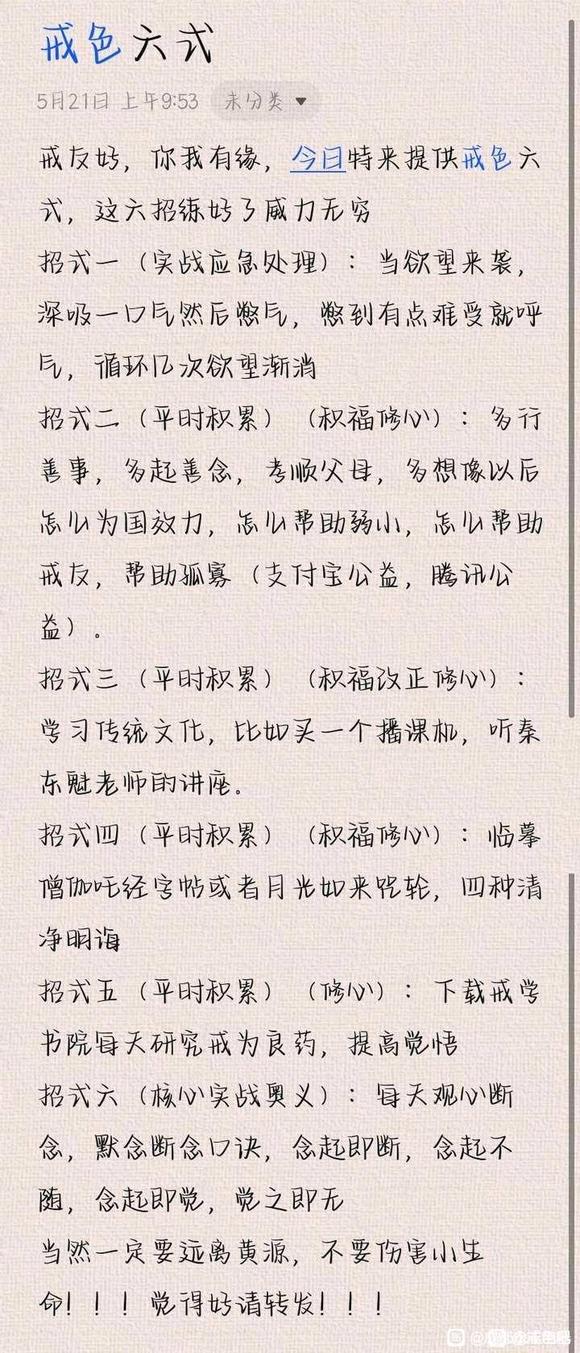 戒色六式
5月21日 上午9:53 未分类
戒友好，你我有缘，今日特来提供戒色六
式，这六招练好了威力无穷
招式一（实战应急处理）：当欲望来袭，
深吸一口气然后憋气，憋到有点难受就呼
气，循环几次欲望渐消
招式二（平时积累）（积福修心）：多行
善事，多起善念，孝顺父母，多想像以后
怎么为国效力，怎么帮助弱小，怎么帮助
戒友，帮助孤寡（支付宝公益，腾讯公
益）。
招式三（平时积累）（积福改正修心）：
学习传统文化，比如买一个播课机，听秦
东魁老师的讲座。
招式四（平时积累）（积福修心）：临摹
僧伽吒经字帖或者月光如来咒轮，四种清
净明诲
招式五（平时积累）（修心）：下载戒学
书院每天研究戒为良药，提高觉悟
招式六（核心实战奥义）：每天观心断
念，默念断念口诀，念起即断，念起不
随，念起即觉，觉之即无
当然一定要远离黄源，不要伤害小生
命！！！觉得好请转发！！！